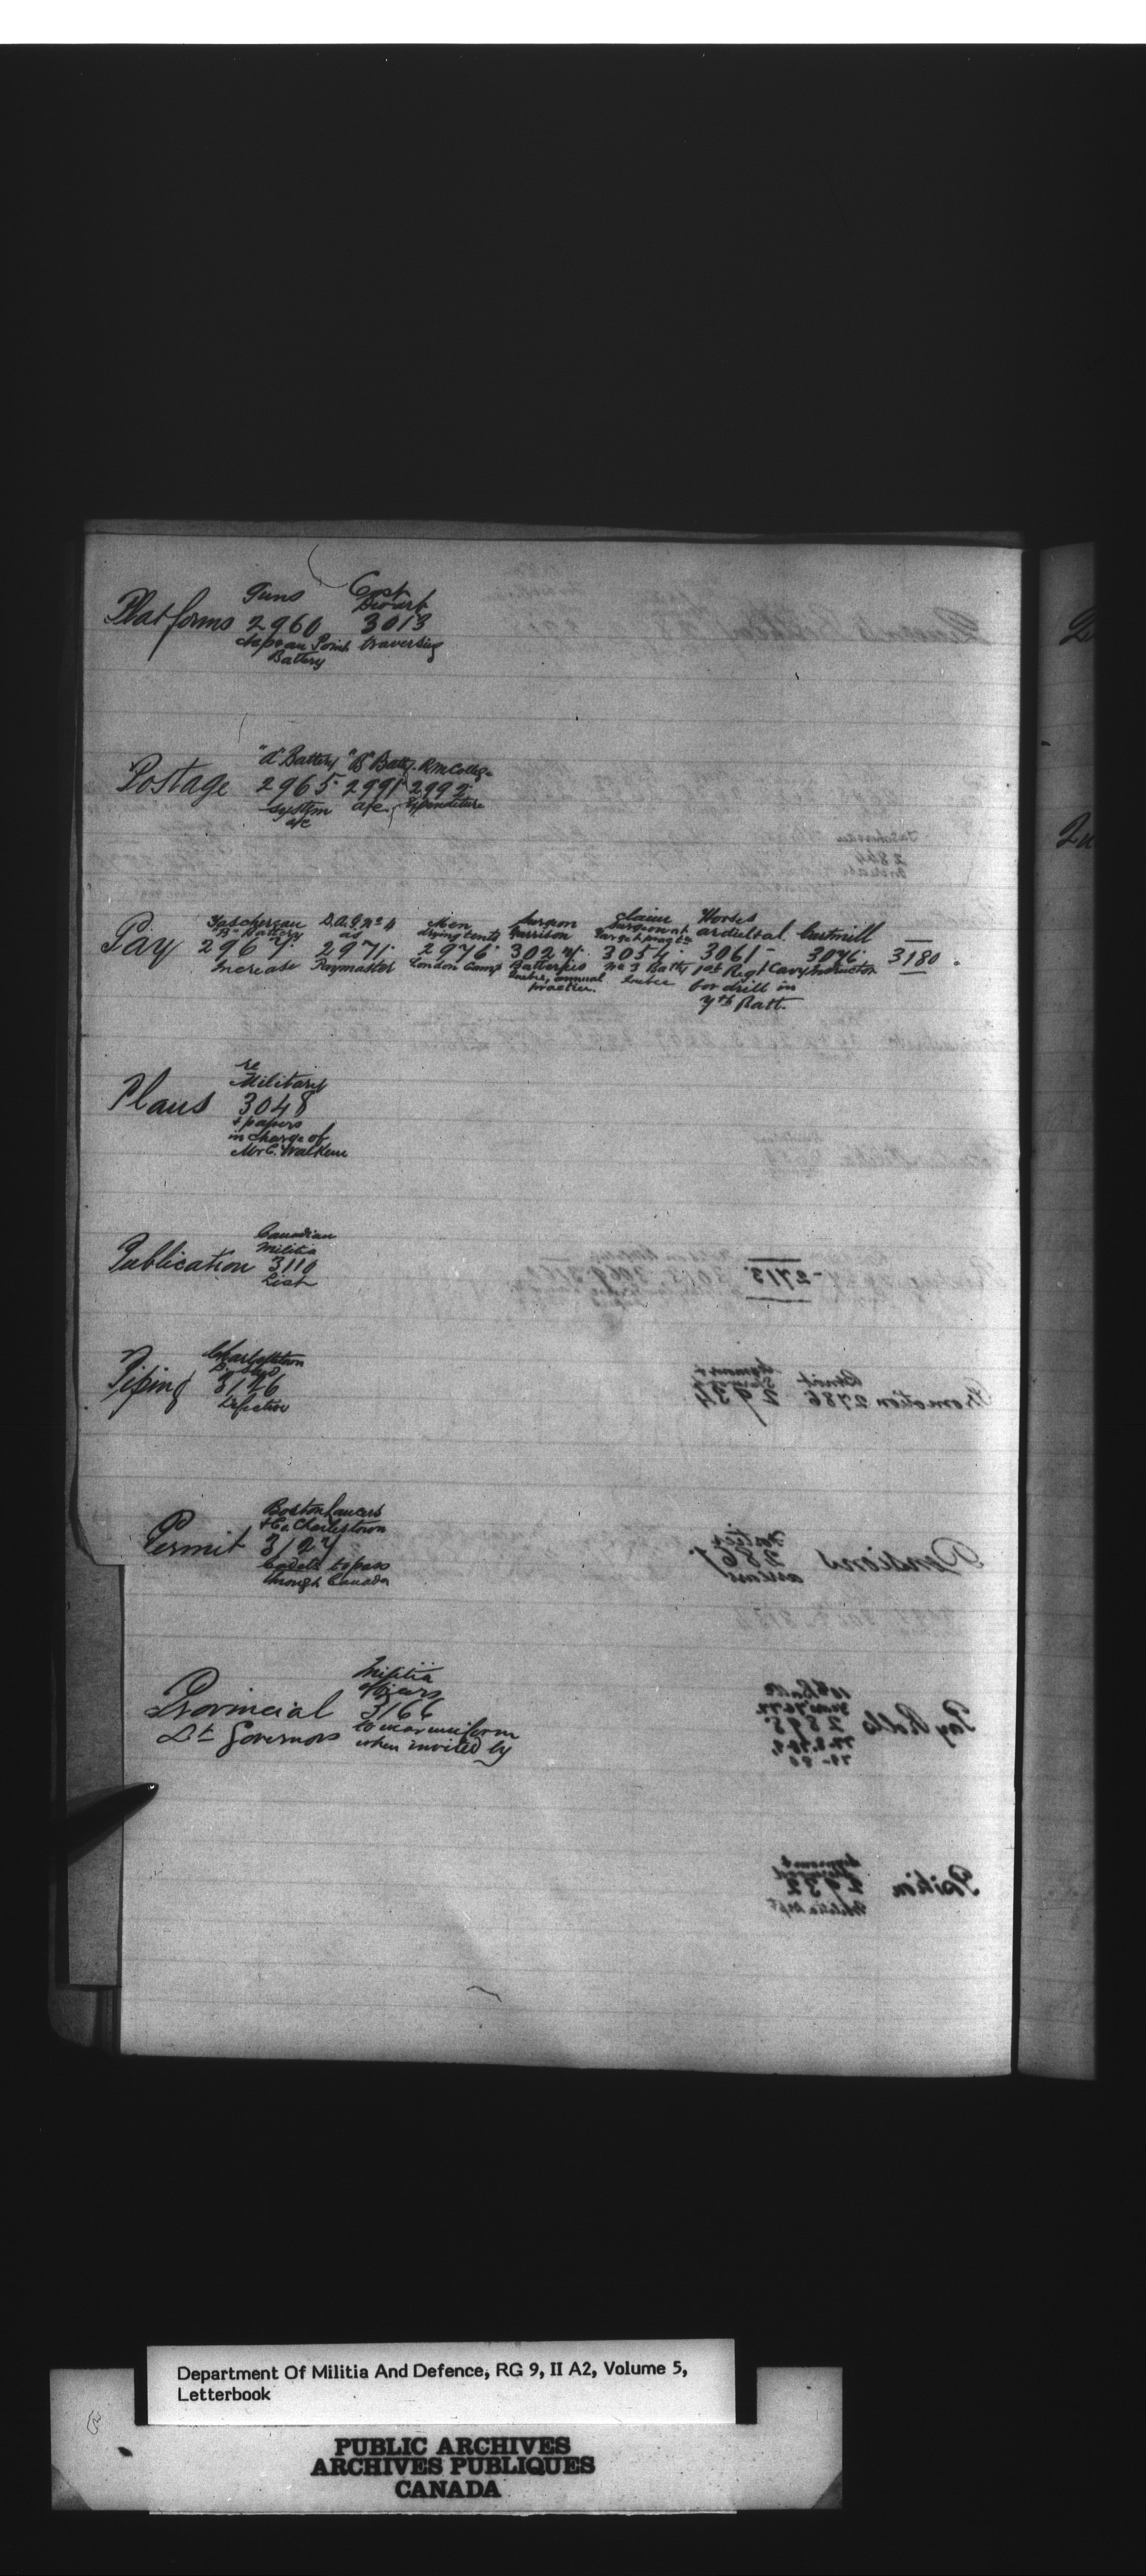 Guns Cost
Dwarf
Platforms 2960 3013
Point traversing
Battery
"A" Battery "B" Batty. R.M. College
Postage 2965 2991 2992
System a/c Expenditure
a/c
Taschereau D.A.G. No 4 Men Surgeon Claim Horses
"B" Battery as drying tents Garrison Surgeon at Cartmill
Target pract
Pay 2967. 2971. 2976. 3027. 3054. 3061 3076. 3180.
Increase Paymaster London Camp Batteries No 3 Batty 1st Regt Cavy Instructor
Quebec, annual Quebec for drill in
practice. 7th Batt.
re
Military
Plans 3048
+ papers
in charge of
Mr C. Walkem
Canadian
Militia
Publication 3110
List
Charlottetown
Piping 3126
Defective
Boston Lancers
+ Co. Charlestown
Permit 3127
Cadets to pass
through Canada
Militia
Officers
Provincial 3166
Lt Governors to wear uniform
when invited by
Department Of Militia And Defence, RG 9, II A2, Volume 5,
Letterbook
PUBLIC ARCHIVES
ARCHIVES PUBLIQUES
CANADA